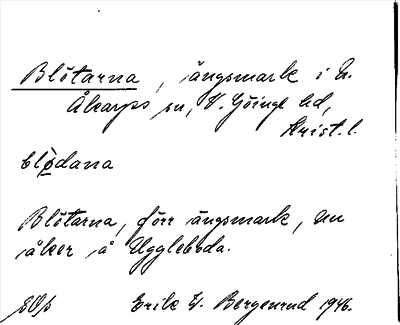 Blötarna, ängsmark i N.
Åkarps sn, V. Göinge hd,
Krist. l.
blödana
Blötarna, förr ängsmark, nu
åker å Uggleboda.
Erik W. Bergenrud 1946.